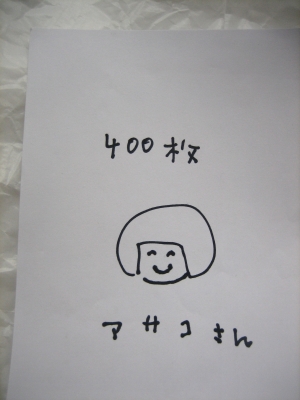 400枚
アサコさん